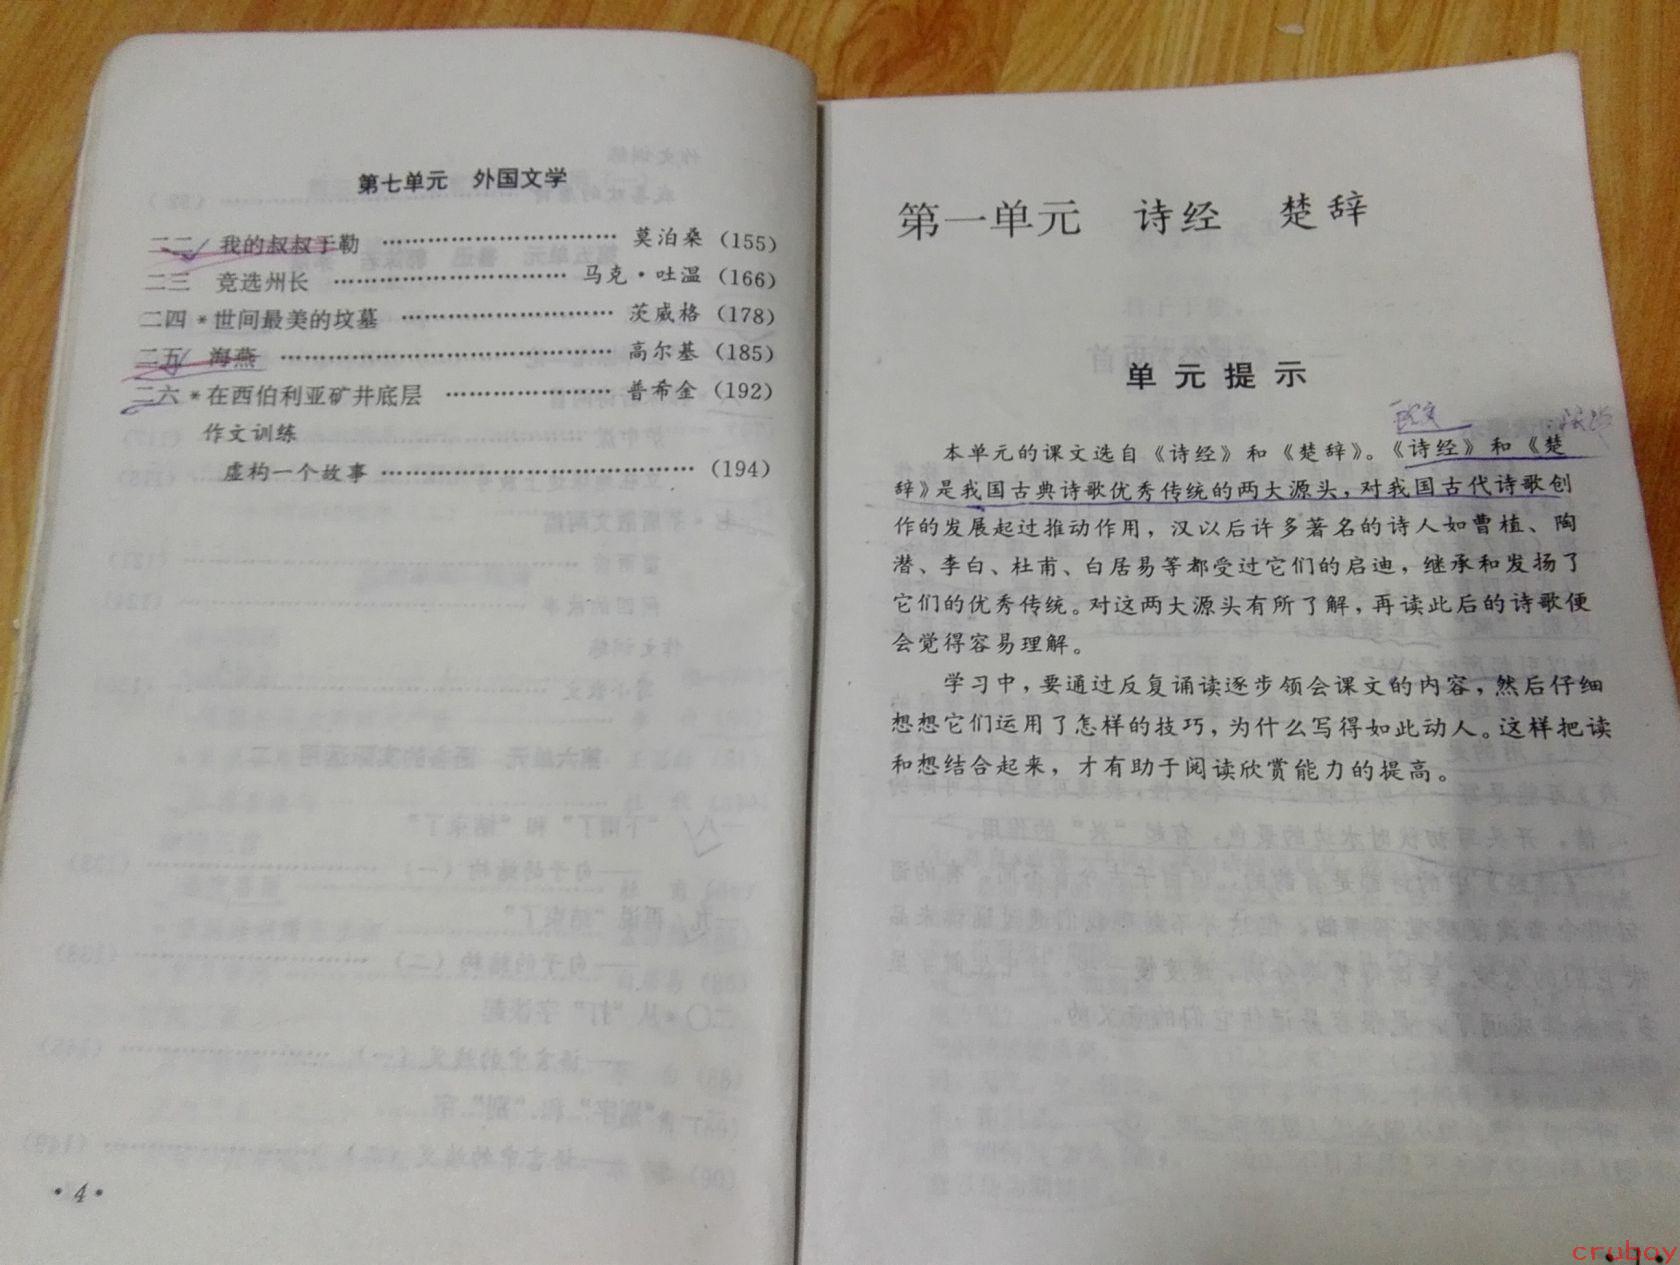 第七单元 外国文学
二二 我的叔叔于勒 …………………………… 莫泊桑 (155)
二三 竞选州长 …………………………… 马克·吐温 (166)
二四 *世间最美的坟墓 ………………………… 茨威格 (178)
二五 海燕 ………………………………………… 高尔基 (185)
二六 *在西伯利亚矿井底层 …………………… 普希金 (192)
作文训练
虚构一个故事 ……………………………………… (194)
·4·
第一单元 诗经 楚辞
单元提示
本单元的课文选自《诗经》和《楚辞》。《诗经》和《楚
辞》是我国古典诗歌优秀传统的两大源头，对我国古代诗歌创
作的发展起过推动作用，汉以后许多著名的诗人如曹植、陶
潜、李白、杜甫、白居易等都受过它们的启迪，继承和发扬了
它们的优秀传统。对这两大源头有所了解，再读此后的诗歌便
会觉得容易理解。
学习中，要通过反复诵读逐步领会课文的内容，然后仔细
想想它们运用了怎样的技巧，为什么写得如此动人。这样把读
和想结合起来，才有助于阅读欣赏能力的提高。
·1·
cruboy